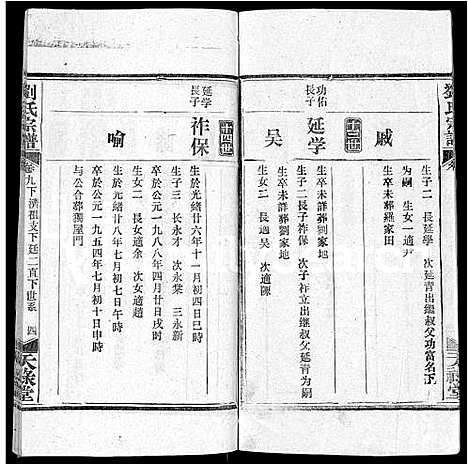 戚
生子二 長延學 次延青出繼叔父功富名下
為嗣 生女一適尹
生卒未葬羅家田
功佑
長子
延学
生卒未詳葬劉家地
生子二長子祚保 次子祚立出繼叔父延青為嗣
吴
生卒未詳葬劉家地
生女二 長適吴 次適陳
延学
長子
祚保
生於光緒廿六年十一月初四日巳時
生子三 长永才 次永棠 三永新
卒於公元一九八八年四月廿日戌時
喻
生於光緒廿八年七月初七日午時
生女二 長女適余 次女適趙
卒於公元一九五四年七月初十日申時
与公合葬獨屋門
劉氏宗譜
卷九下清祖支下廷二直下世系 四
天祿堂